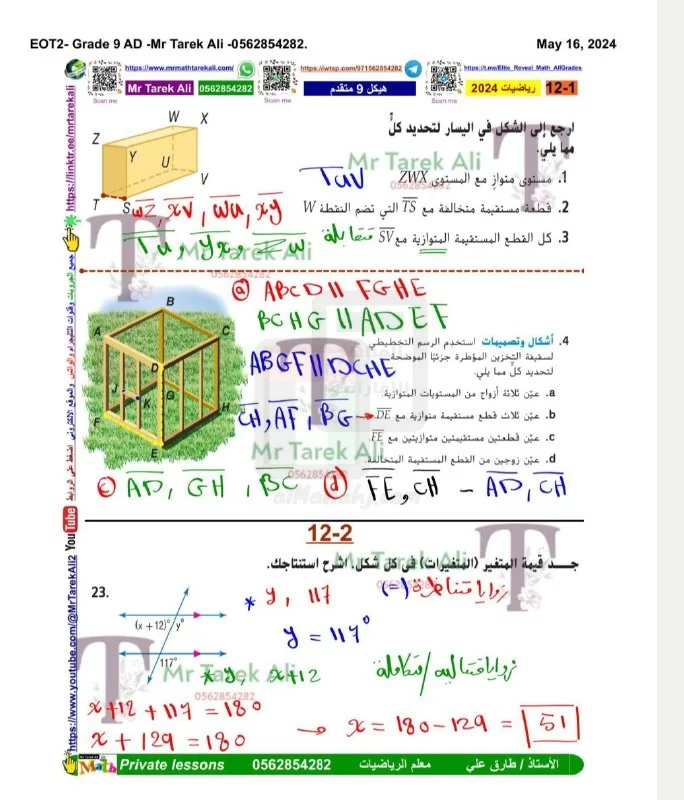 EOT2- Grade 9 AD -Mr Tarek Ali -0562854282.
May 16, 2024
https://www.mrmathtarekali.com/
https://iwtsp.com/971562854282
https://t.me/Elite_Reveal_Math_AllGrades
Mr Tarek Ali 0562854282
هيكل 9 متقدم
رياضيات 2024 12-1
Scan me
Scan me
Scan me
ارجع إلى الشكل في اليسار لتحديد كلٍّ
مما يلي.
W X
Z
Y U
V
T S
1. مستوى متوازٍ مع المستوى ZWX
TUV
2. قطعة مستقيمة متخالفة مع TS التي تضم النقطة W
WZ, XV, WU, XY
3. كل القطع المستقيمة المتوازية مع SV
متقابلة
TU, YX, ZW
Mr Tarek Ali
0562854282
ⓐ ABCD || FGHE
BCHG || ADEF
ABGF || DCHE
B
A C
D
J G
K H
F
E
4. أشكال وتصميمات استخدم الرسم التخطيطي
لسقيفة التخزين المؤطرة جزئيًا الموضحة
لتحديد كلٍّ مما يلي.
a. عيّن ثلاثة أزواج من المستويات المتوازية.
b. عيّن ثلاث قطع مستقيمة متوازية مع DE
CH, AF, BG
c. عيّن قطعتين مستقيمتين متوازيتين مع FE
d. عيّن زوجين من القطع المستقيمة المتخالفة.
Mr Tarek Ali
ⓒ AD, GH, BC
ⓓ FE, CH – AD, CH
12-2
جــد قيمة المتغير (المتغيرات) في كل شكل. اشرح استنتاجك.
23.
(x + 12)° y°
117°
* y, 117
(=) زوايا متناظرة
y = 117°
Mr Tarek Ali
0562854282
* y, x+12
x+12+117=180
x+129=180
→ x = 180-129 = 51
https://linktr.ee/mrtarekali
https://www.youtube.com/@MrTarekAli2 YouTube
Math Private lessons 0562854282 معلم الرياضيات الأستاذ / طارق علي